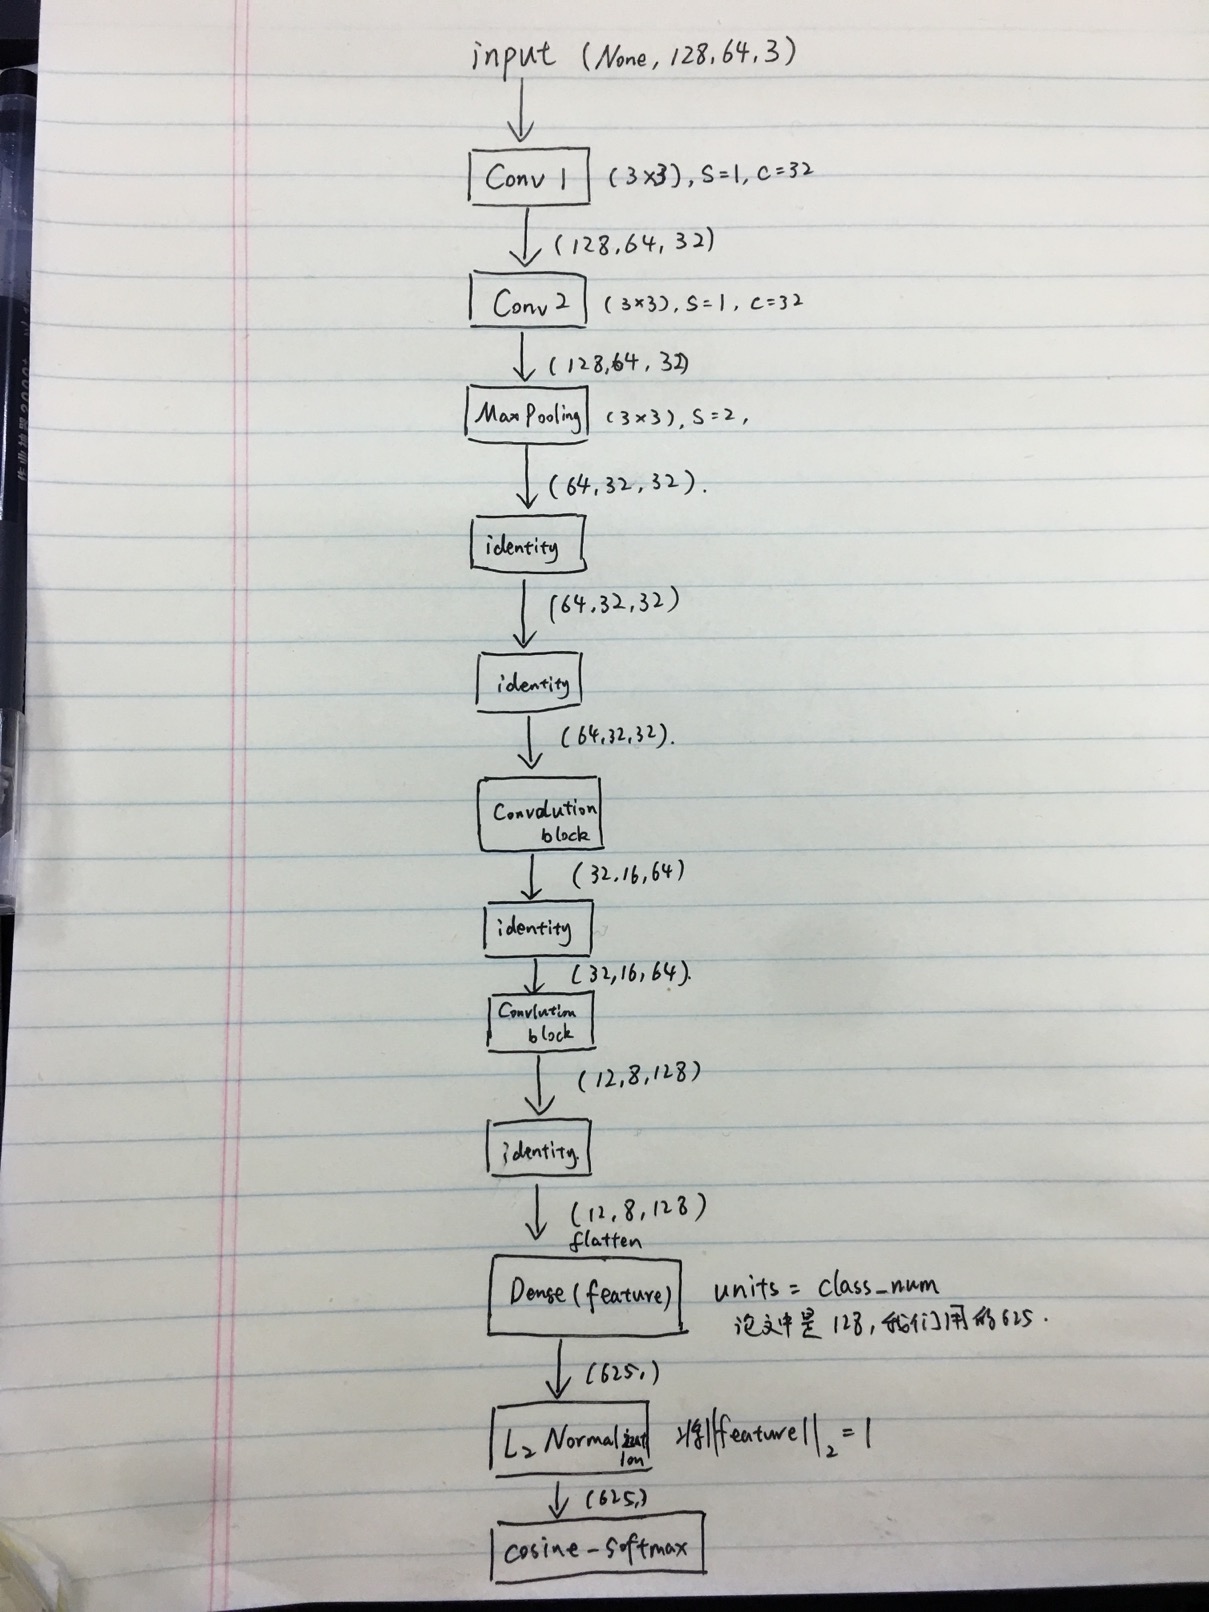 input (None, 128, 64, 3)
Conv 1 (3×3), S=1, C=32
(128, 64, 32)
Conv 2 (3×3), S=1, C=32
(128, 64, 32)
MaxPooling (3×3), S=2,
(64, 32, 32).
identity
(64, 32, 32)
identity
(64, 32, 32).
Convolution
block
(32, 16, 64)
identity
(32, 16, 64).
Convlution
block
(12, 8, 128)
identity.
(12, 8, 128)
flatten
Dense (feature) units = class_num
论文中是 128, 我们用的 625.
(625,)
L₂ Normalizat
ion
将||feature||₂ = 1
(625,)
cosine-softmax